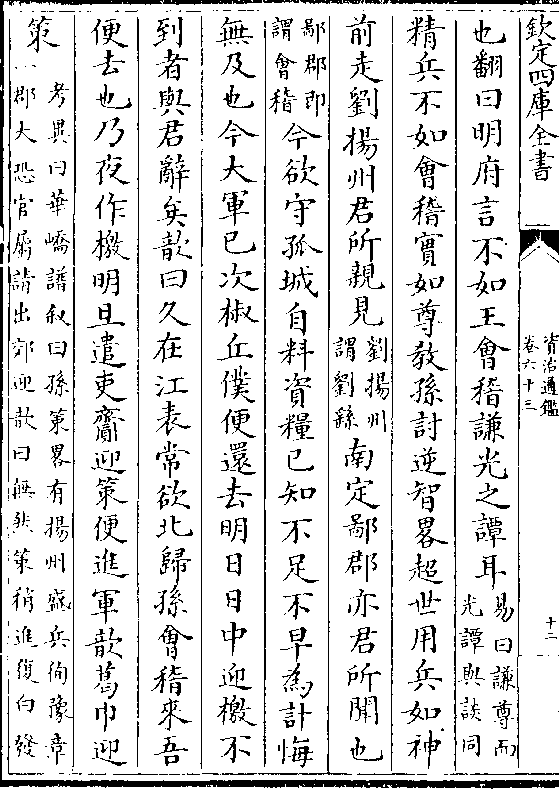 欽定四庫全書
資治通鑑
卷六十三
十二
也翻曰明府言不如王會稽謙光之譚耳易曰謙尊而光譚與談同
精兵不如會稽實如尊教孫討逆智畧超世用兵如神
前走劉揚州君所親見劉揚州謂劉繇南定鄱郡亦君所聞也
鄱郡即謂會稽今欲守孤城自料資糧已知不足不早為計悔
無及也今大軍已次椒丘僕便還去明日日中迎檄不
到者與君辭矣歆曰久在江表常欲北歸孫會稽來吾
便去也乃夜作檄明旦遣吏齎迎策便進軍歆葛巾迎
策考異曰華嶠譜叙曰孫策畧有揚州盛兵徇豫章一郡大恐官屬請出郊迎歆曰無然策稍進復白發